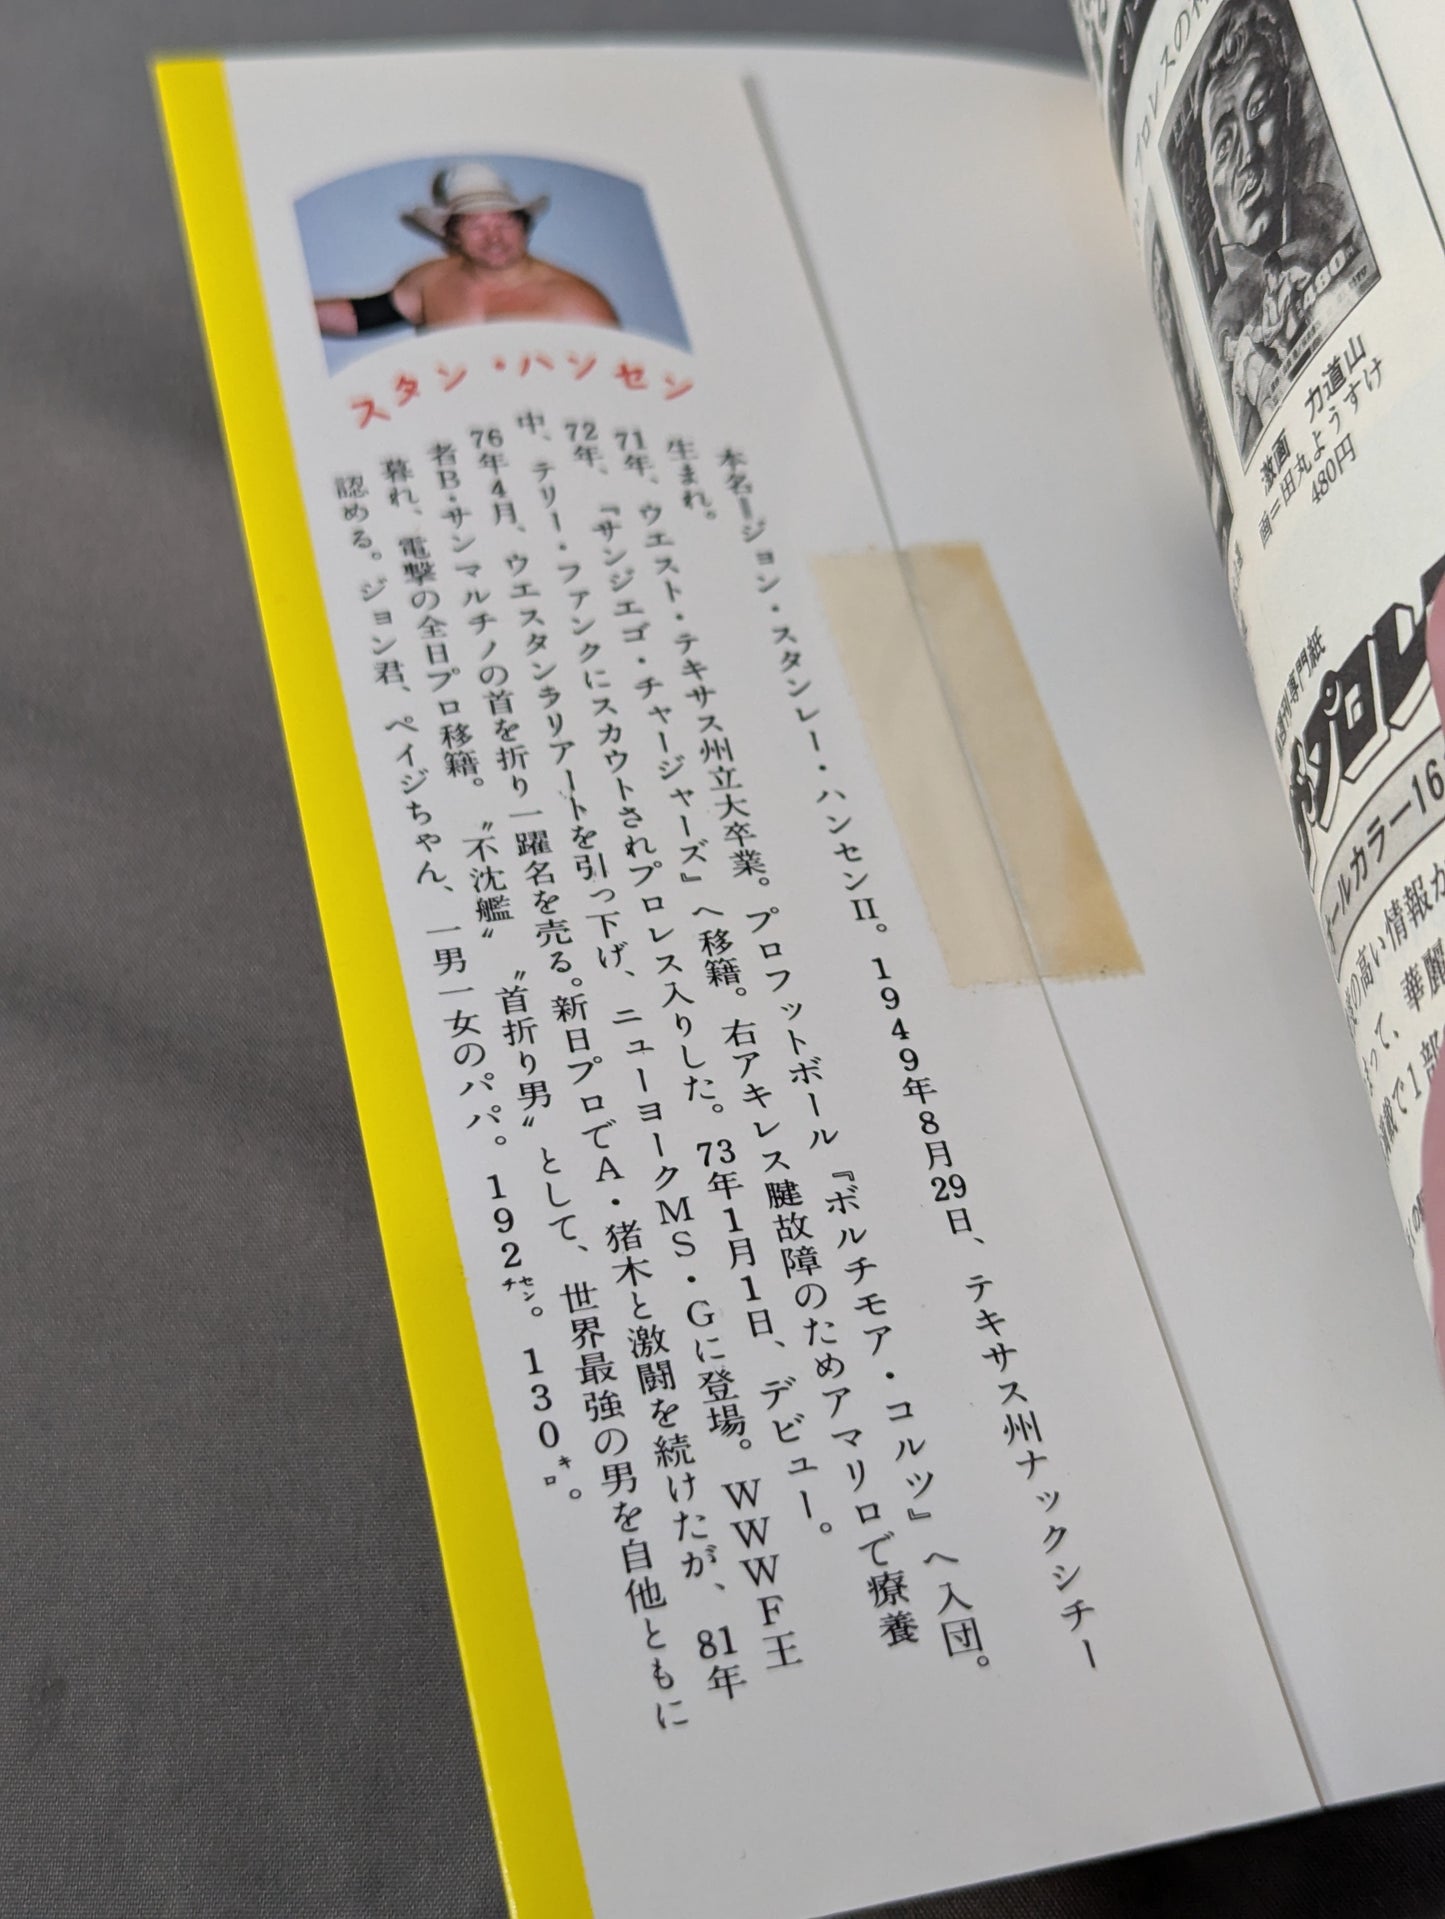 スタン・ハンセン
本名=ジョン・スタンレー・ハンセンII。1949年8月29日、テキサス州ナックシチー
生まれ。
71年、ウエスト・テキサス州立大卒業。プロフットボール『ボルチモア・コルツ』へ入団。
72年、『サンジエゴ・チャージャーズ』へ移籍。右アキレス腱故障のためアマリロで療養
中、テリー・ファンクにスカウトされプロレス入りした。73年1月1日、デビュー。
76年4月、ウエスタンラリアートを引っ下げ、ニューヨークMS・Gに登場。WWWF王
者B・サンマルチノの首を折り一躍名を売る。新日プロでA・猪木と激闘を続けたが、81年
暮れ、電撃の全日プロ移籍。〝不沈艦〟〝首折り男〟として、世界最強の男を自他ともに
認める。ジョン君、ペイジちゃん、一男一女のパパ。192センチ。130キロ。
プロレスの
480
力道山
激画
画=田丸ようすけ
480円
週刊専門紙
オールカラー16
の高い情報が
華麗
で1部